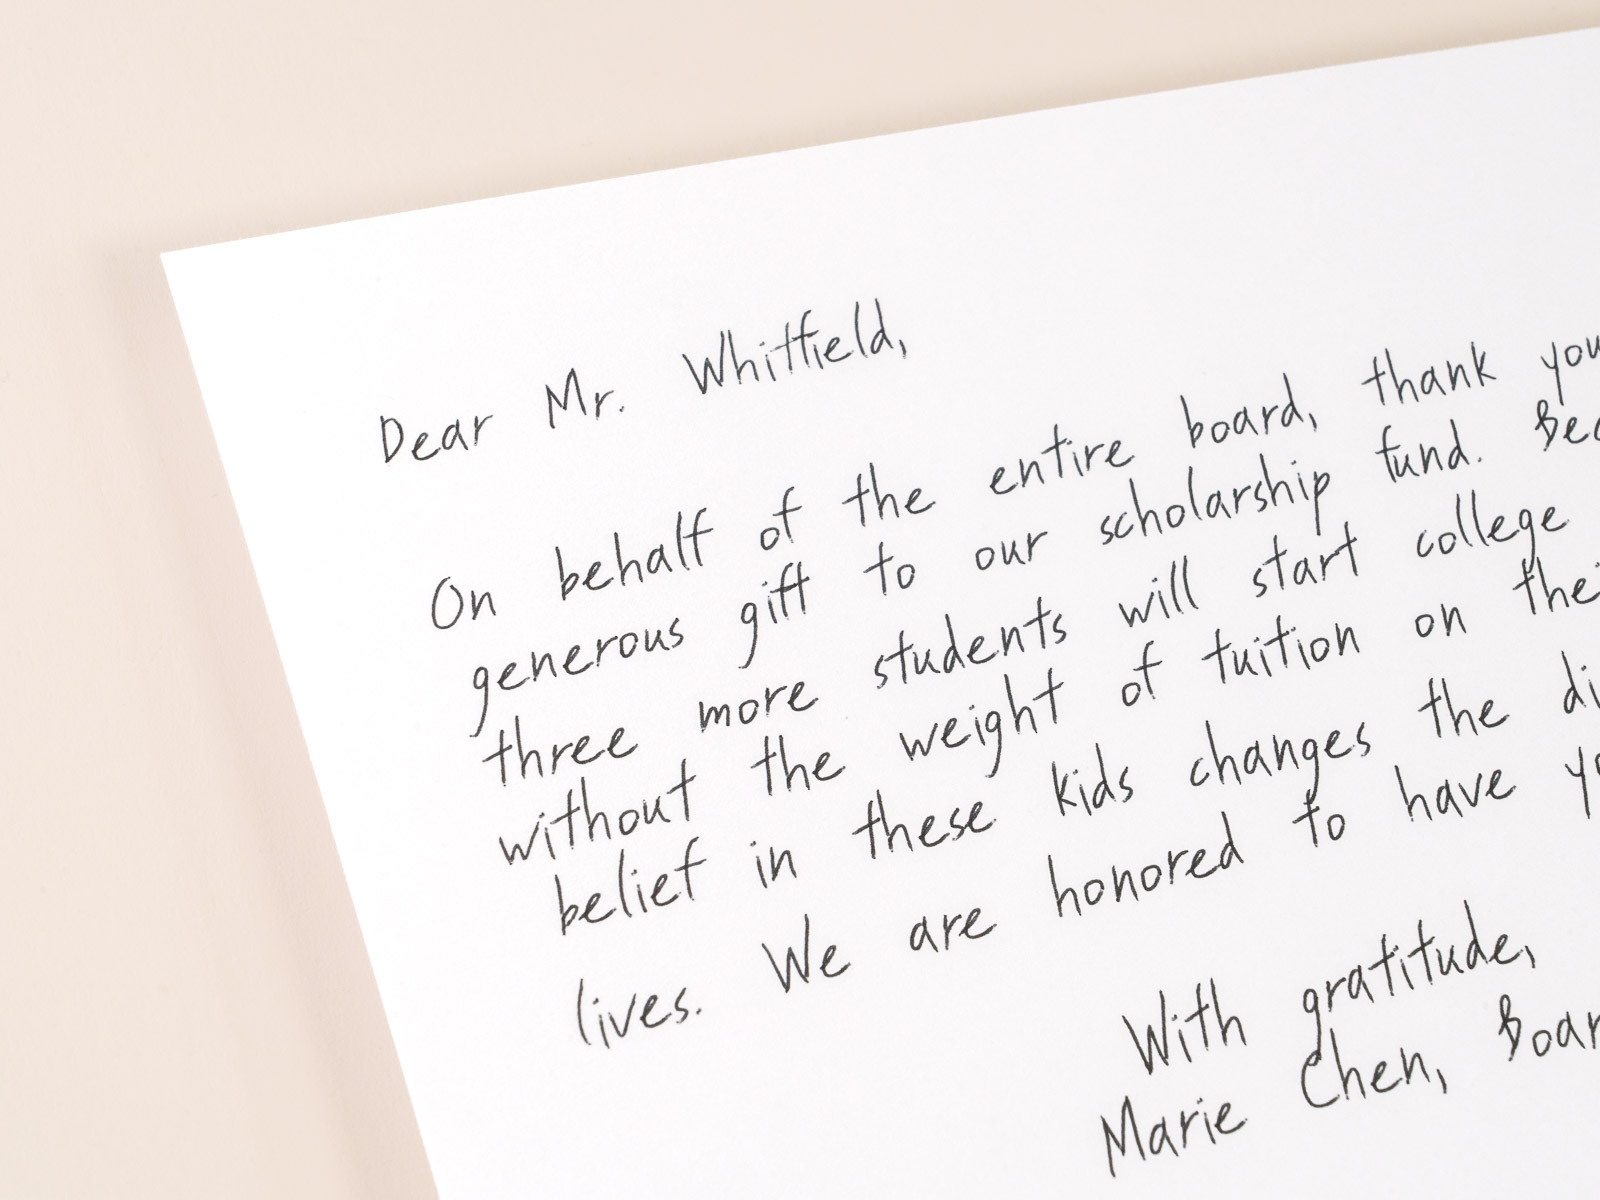 Dear Mr. Whitfield,
On behalf of the entire board, thank you
generous gift to our scholarship fund.
three more students will start college
without the weight of tuition on
belief in these kids changes the
lives. We are honored to have
With gratitude,
Marie Chen,